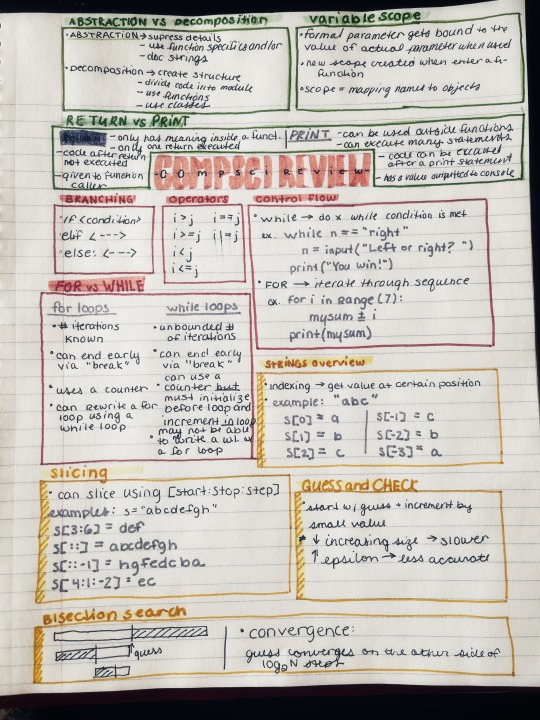 ABSTRACTION vs Decomposition
• ABSTRACTION → supress details
- use function specifics and/or
- doc strings
• Decomposition → create structure
- divide code into module
- use functions
- use classes
variable scope
• formal parameter gets bound to the
value of actual parameter when used
• new scope created when enter a fn-
function
• scope = mapping names to objects
RETURN vs PRINT
- only has meaning inside a funct.
- only one return executed
- code after return
not executed
- given to function
caller
PRINT
- can be used outside functions
- can execute many statements
- code can be executed
after a print statement
- has a value outputted to console
COMPSCI REVIEW
compsci Review
BRANCHING
• if <condition>
elif <--->
• else: <--->
operators
i > j i == j
i >= j i != j
i < j
i <= j
control flow
• while → do x while condition is met
ex. while n == "right"
n = input("Left or right? ")
print("You win!")
• FOR → iterate through sequence
ex. for i in range(7):
mysum ± i
print(mysum)
FOR vs WHILE
for loops
• # iterations
known
• can end early
via "break"
• uses a counter
• can rewrite a for
loop using a
while loop
while loops
• unbounded #
of iterations
• can end early
via "break"
can use a
• counter but
must initialize
before loop and
increment in loop
may not be able
• to write a wh. w/
a for loop
STRINGS overview
• indexing → get value at certain position
• example: "abc"
S[0] = a S[-1] = c
S[1] = b S[-2] = b
S[2] = c S[-3] = a
Slicing
• can slice using [start:stop:step]
examples: s= "abcdefgh"
S[3:6] = def
S[::] = abcdefgh
S[::-1] = hgfedcba
S[4:1:-2] = ec
GUESS and CHECK
• start w/ guess + increment by
small value
• ↓ increasing size → slower
↑ epsilon → less accurate
Bisection search
guess
• convergence:
guess converges on the other side of
log₂N steps